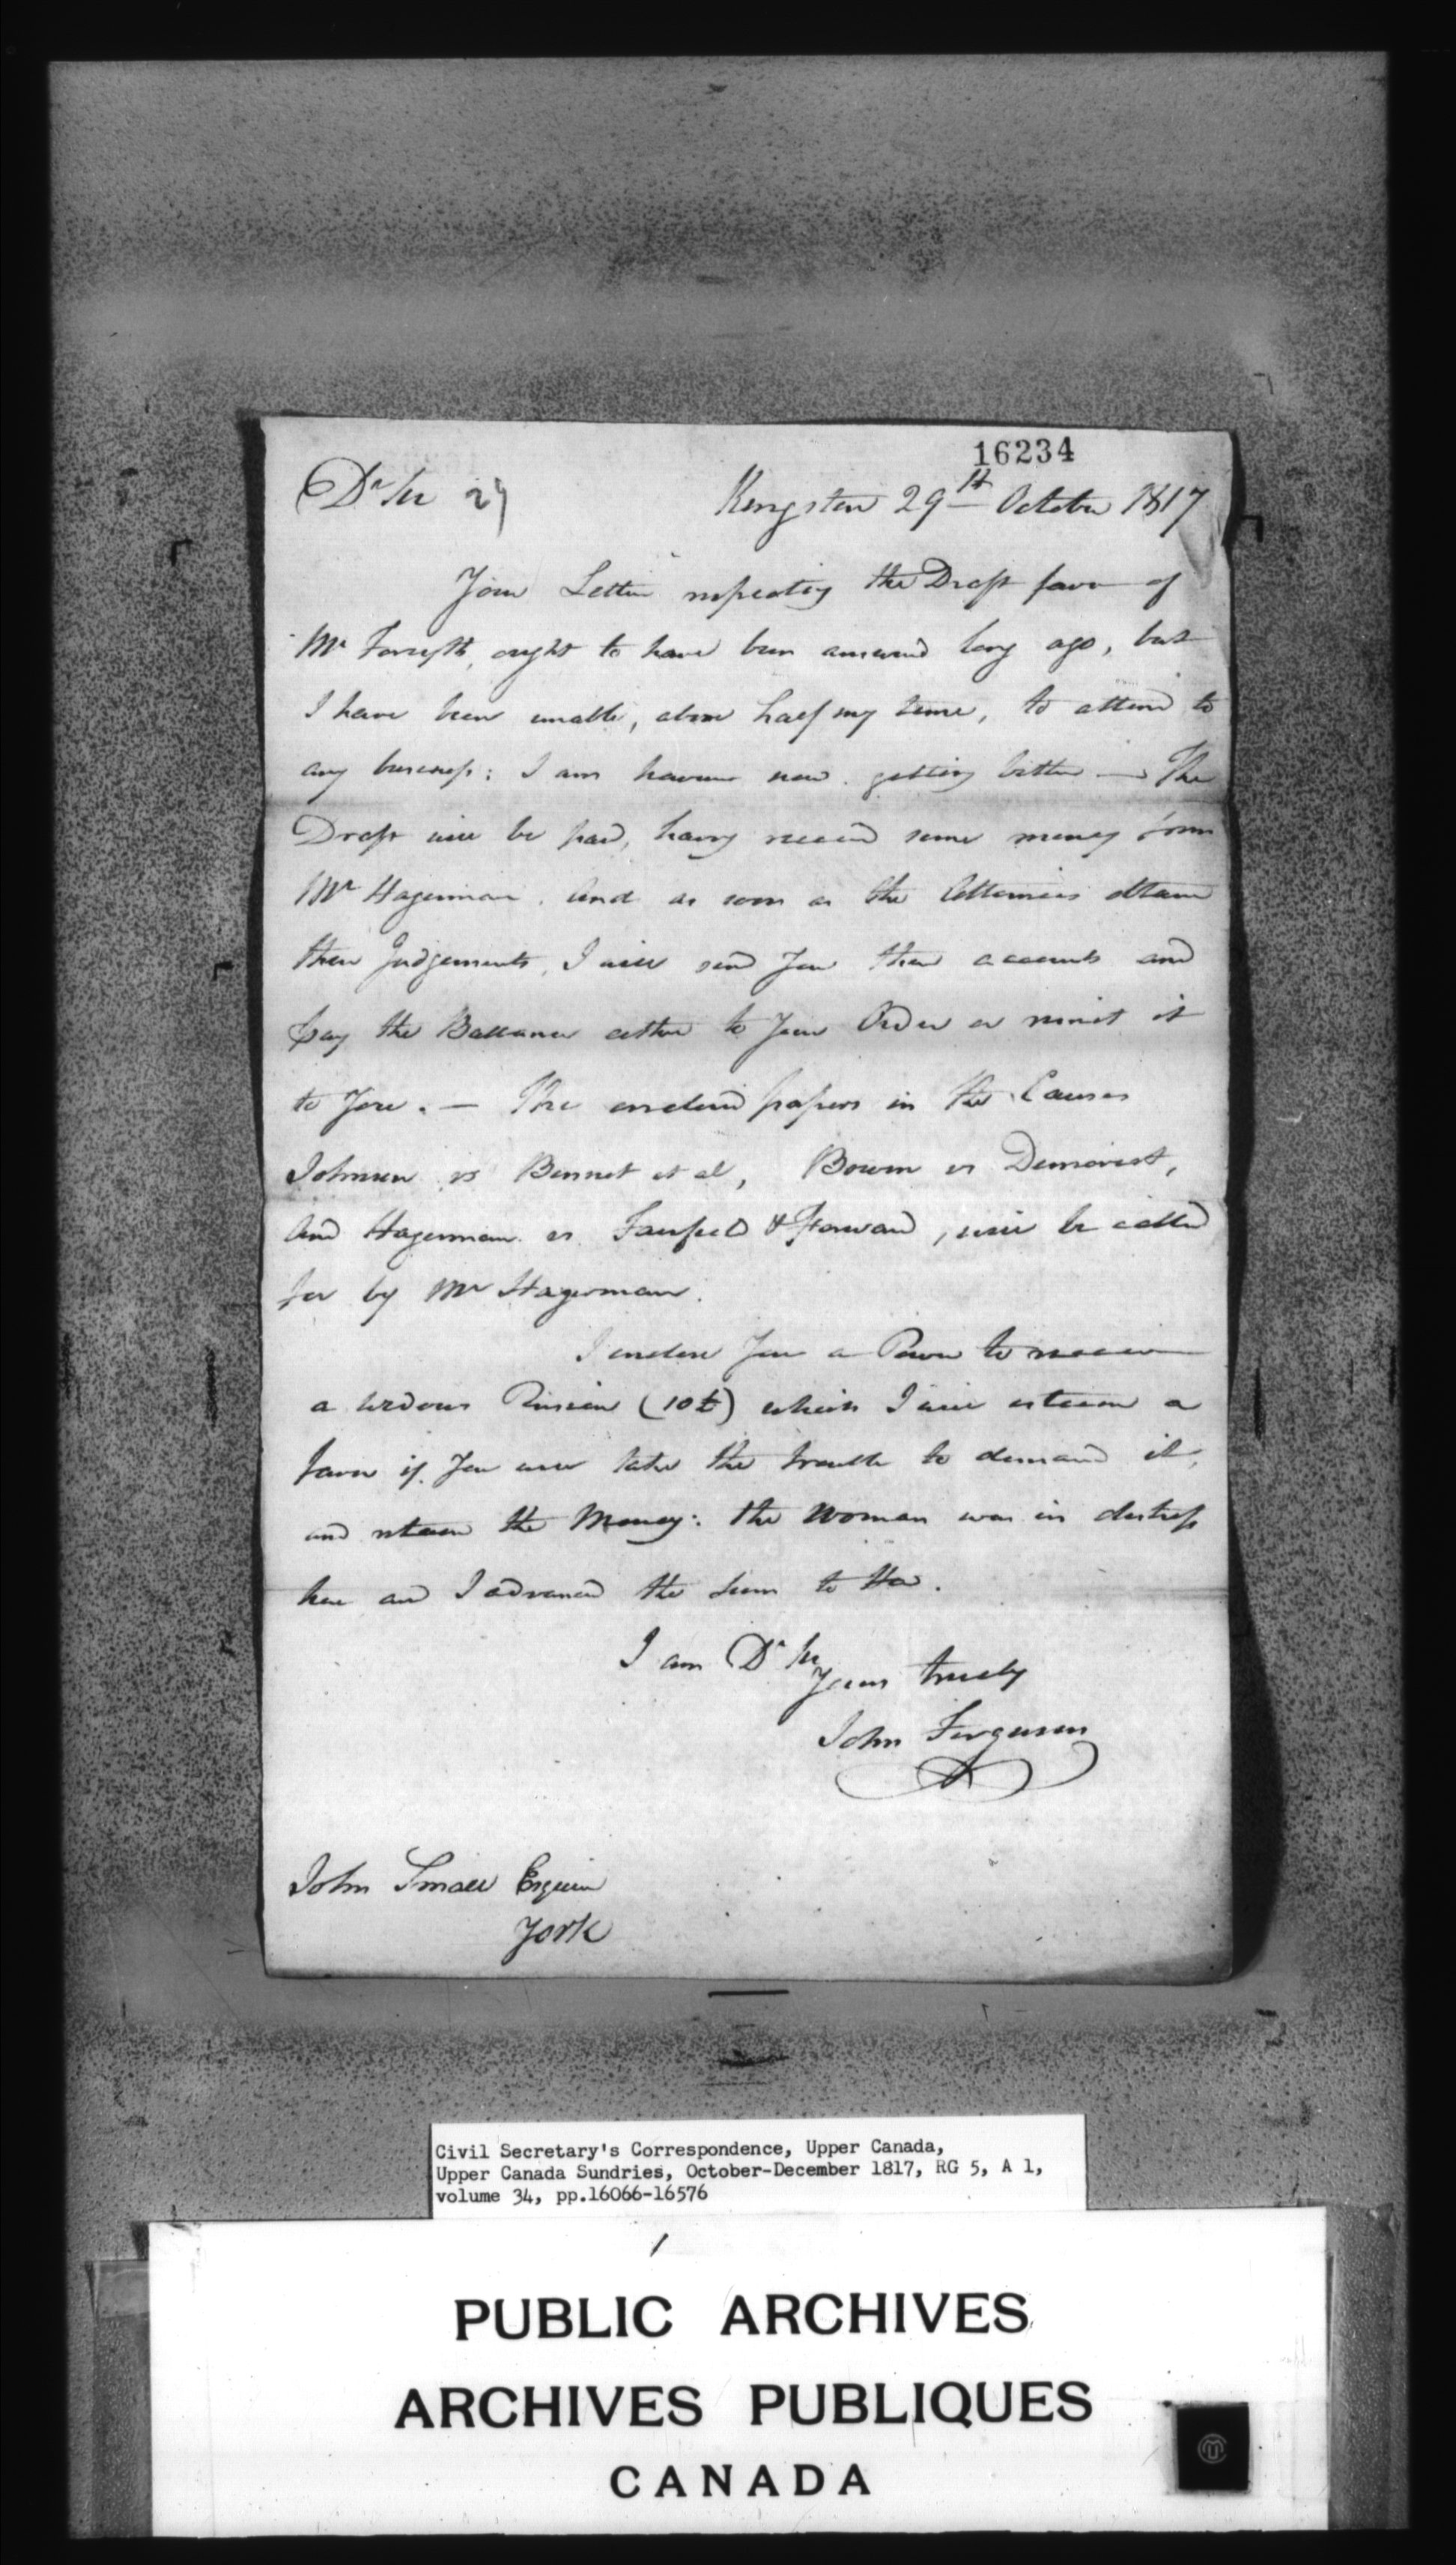 16234
Dr Sir 29
Kingston 29th October 1817
Your Letter respecting the Draft favor of
Mr Forsyth, ought to have been answered long ago, but
I have been unable, above half my time, to attend to
any business: I am however now getting better — The
Draft will be paid, having received some money from
Mr Hagerman. And as soon as the Attornies obtain
their Judgements, I will send You their accounts and
pay the Ballance either to Your Order or remit it
to You. — The enclosed papers in the Causes
Johnson vs Bennet et al, Bowen vs Demorest,
And Hagerman vs & Howard, will be called
for by Mr Hagerman.
I enclose You a Power to receive
a widows Pension (10£) which I will esteem a
favor if You will take the trouble to demand it,
and retain the Money: the Woman was in distress
here and I advanced the Sum to Her.
I am Dr Sir
Yours truely
John Ferguson
John Small Esquire
York
Civil Secretary's Correspondence, Upper Canada,
Upper Canada Sundries, October-December 1817, RG 5, A 1,
volume 34, pp.16066-16576
PUBLIC ARCHIVES
ARCHIVES PUBLIQUES
CANADA